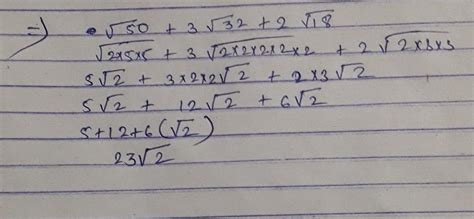 ⇒ √50 + 3 √32 + 2 √18
√2×5×5 + 3 √2×2×2×2×2 + 2 √2×3×3
5√2 + 3×2×2√2 + 2×3√2
5√2 + 12√2 + 6√2
5+12+6(√2)
23√2